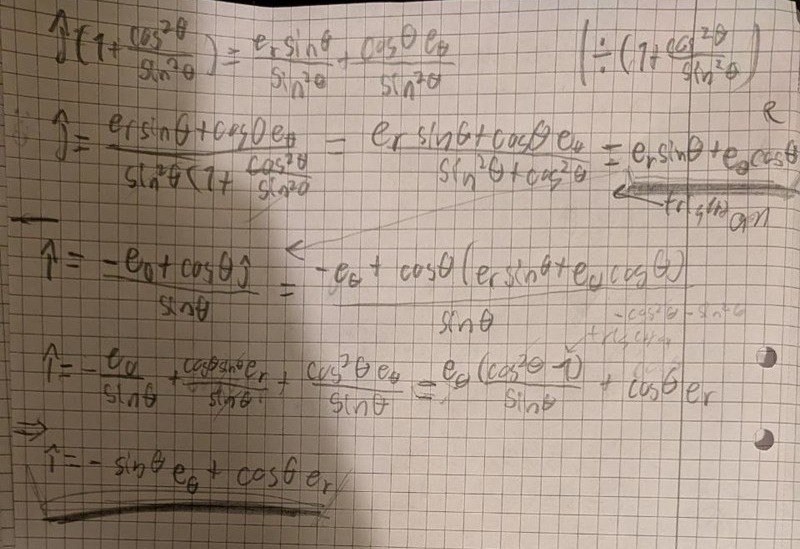 ĵ(1+cos²θ/sin²θ) = e_r sinθ/sin²θ + cosθ e_θ/sin²θ   |÷(1+cos²θ/sin²θ)
ĵ = (e_r sinθ + cosθ e_θ)/(sin²θ(1+cos²θ/sin²θ)) = (e_r sinθ + cosθ e_θ)/(sin²θ + cos²θ) = e_r sinθ + e_θ cosθ
î = (-e_θ + cosθ ĵ)/sinθ = (-e_θ + cosθ(e_r sinθ + e_θ cosθ))/sinθ
î = -e_θ/sinθ + cosθ sinθ e_r/sinθ + cos²θ e_θ/sinθ = e_θ(cos²θ - 1)/sinθ + cosθ e_r
⇒
î = - sinθ e_θ + cosθ e_r